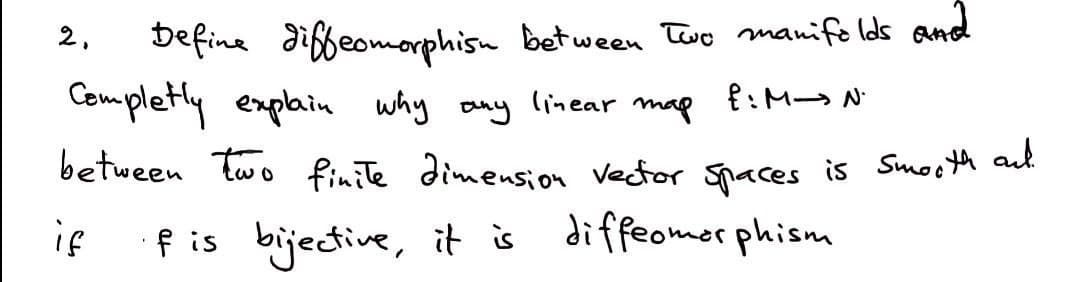 2. Define diffeomorphism between Two manifolds and
Completly explain why any linear map f: M→ N
between two finite dimension vector spaces is smooth and
if f is bijective, it is diffeomorphism